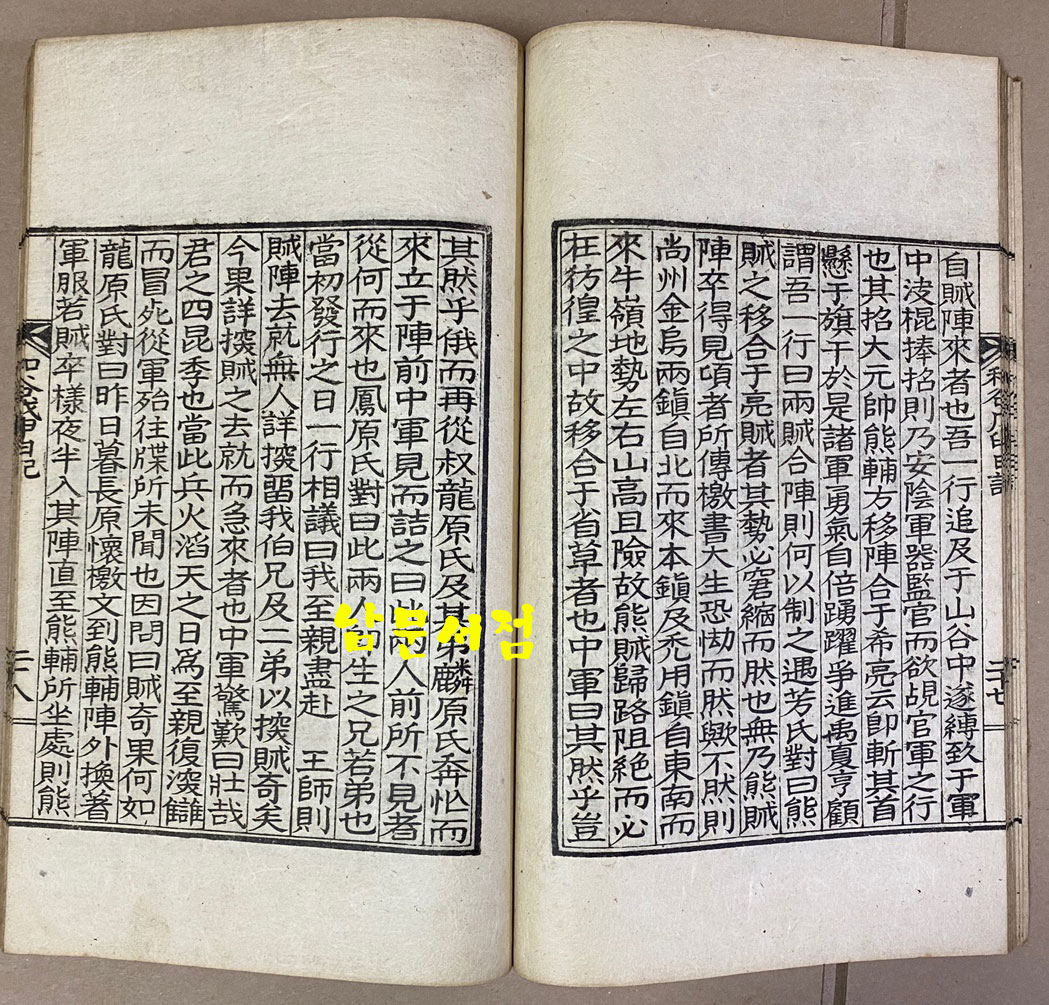 自賊陣來者也吾一行追及于山谷中遂縛致于軍
中浚棍捧招則乃安陰軍器監官而欲覘官軍之行
也其招大元帥熊輔方移陣合于希亮云卽斬其首
懸于旗干於是諸軍勇氣自倍踴躍爭進禹夏亨顧
謂吾一行曰兩賊合陣則何以制之遇芳氏對曰熊
賊之移合于亮賊者其勢必窘縮而然也無乃熊賊
陣卒得見頃者所傳檄書大生恐㤼而然歟不然則
尚州金烏兩鎭自北而來本鎭及禿用鎭自東南而
來牛嶺地勢左右山高且險故熊賊歸路阻絕而必
在彷徨之中故移合于省草者也中軍曰其然乎豈
二十七
其然乎俄而再從叔龍原氏及其弟麟原氏奔忙而
來立于陣前中軍見而詰之曰此兩人前所不見者
從何而來也鳳原氏對曰此兩人生之兄若弟也
當初發行之日一行相議曰我至親盡赴 王師則
賊陣去就無人詳探留我伯兄及二弟以探賊奇矣
今果詳探賊之去就而急來者也中軍驚歎曰壯哉
君之四昆季也當此兵火滔天之日爲至親復深讎
而冒死從軍殆往牒所未聞也因問曰賊奇果何如
龍原氏對曰昨日暮長原懷檄文到熊輔陣外換著
軍服若賊卒樣夜半入其陣直至熊輔所坐處則熊
二十八
남문서점